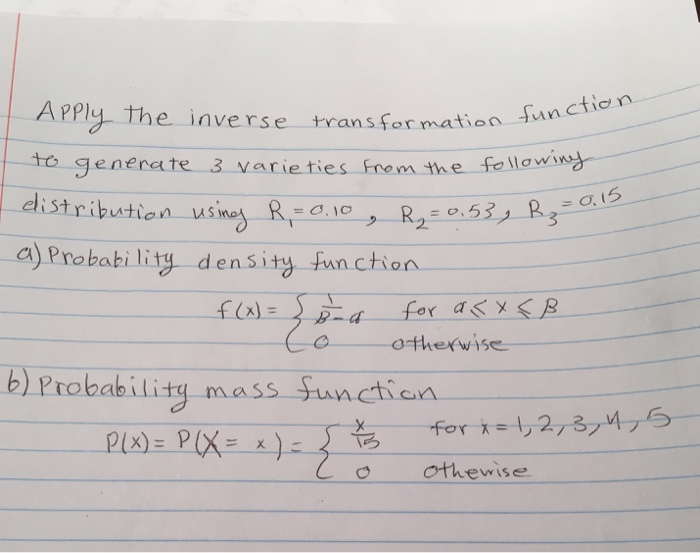 Apply the inverse transformation function
to generate 3 varieties from the following
distribution using R₁=0.10, R₂=0.53, R₃=0.15
a) Probability density function
f(x) = { 1/(β-α) for α≤x≤β
0 otherwise
b) Probability mass function
P(x) = P(X = x) = { x/15 for x = 1,2,3,4,5
0 othewise